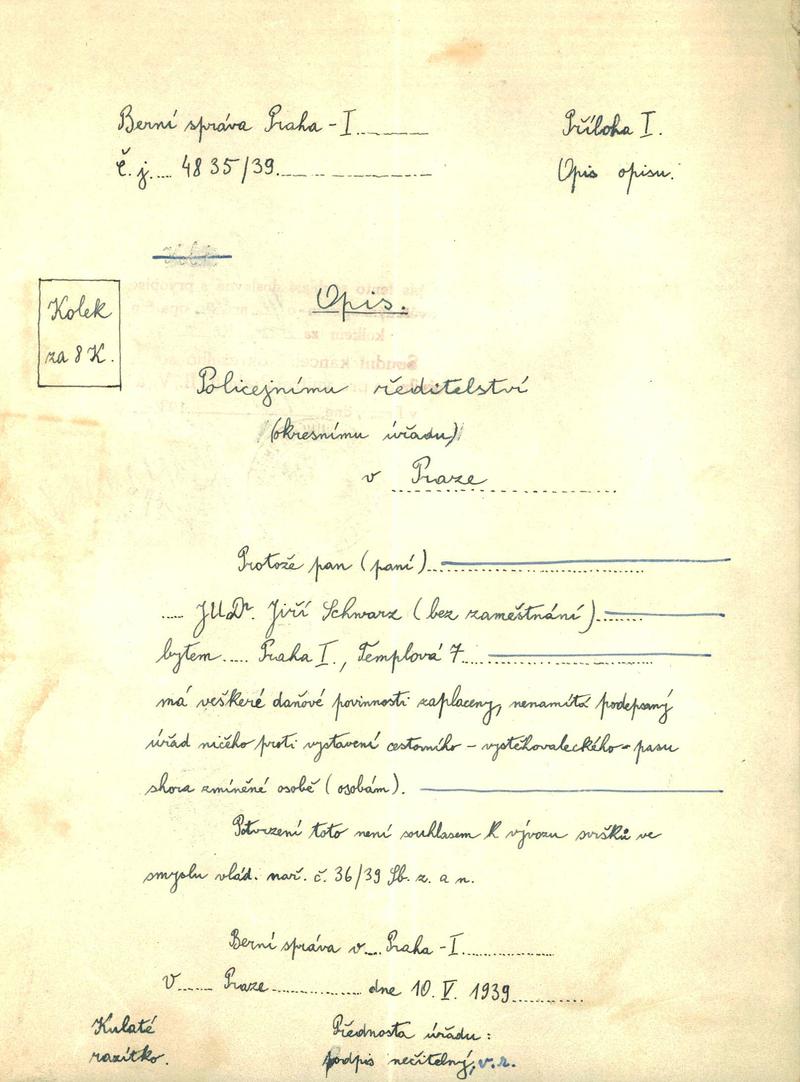 Berní správa Praha - I.
Příloha I.
Č. j. 4835/39.
Opis opisu.
Kolek
za 8 K.
Opis.
Policejnímu ředitelství
(okresnímu úřadu)
v Praze
Protože pan (paní)
JUDr. Jiří Schwarz (bez zaměstnání)
bytem Praha I., Templová 7.
má veškeré daňové povinnosti zaplaceny, nenamítá podepsaný
úřad ničeho proti vystavení cestovního - vystěhovaleckého - pasu
shora zmíněné osobě (osobám).
Potvrzení toto není souhlasem k vývozu svršků ve
smyslu vlád. nař. č. 36/39 Sb. z. a n.
Berní správa v Praha - I.
V Praze dne 10. V. 1939
Kulaté
razítko.
Přednosta úřadu:
podpis nečitelný, v. r.